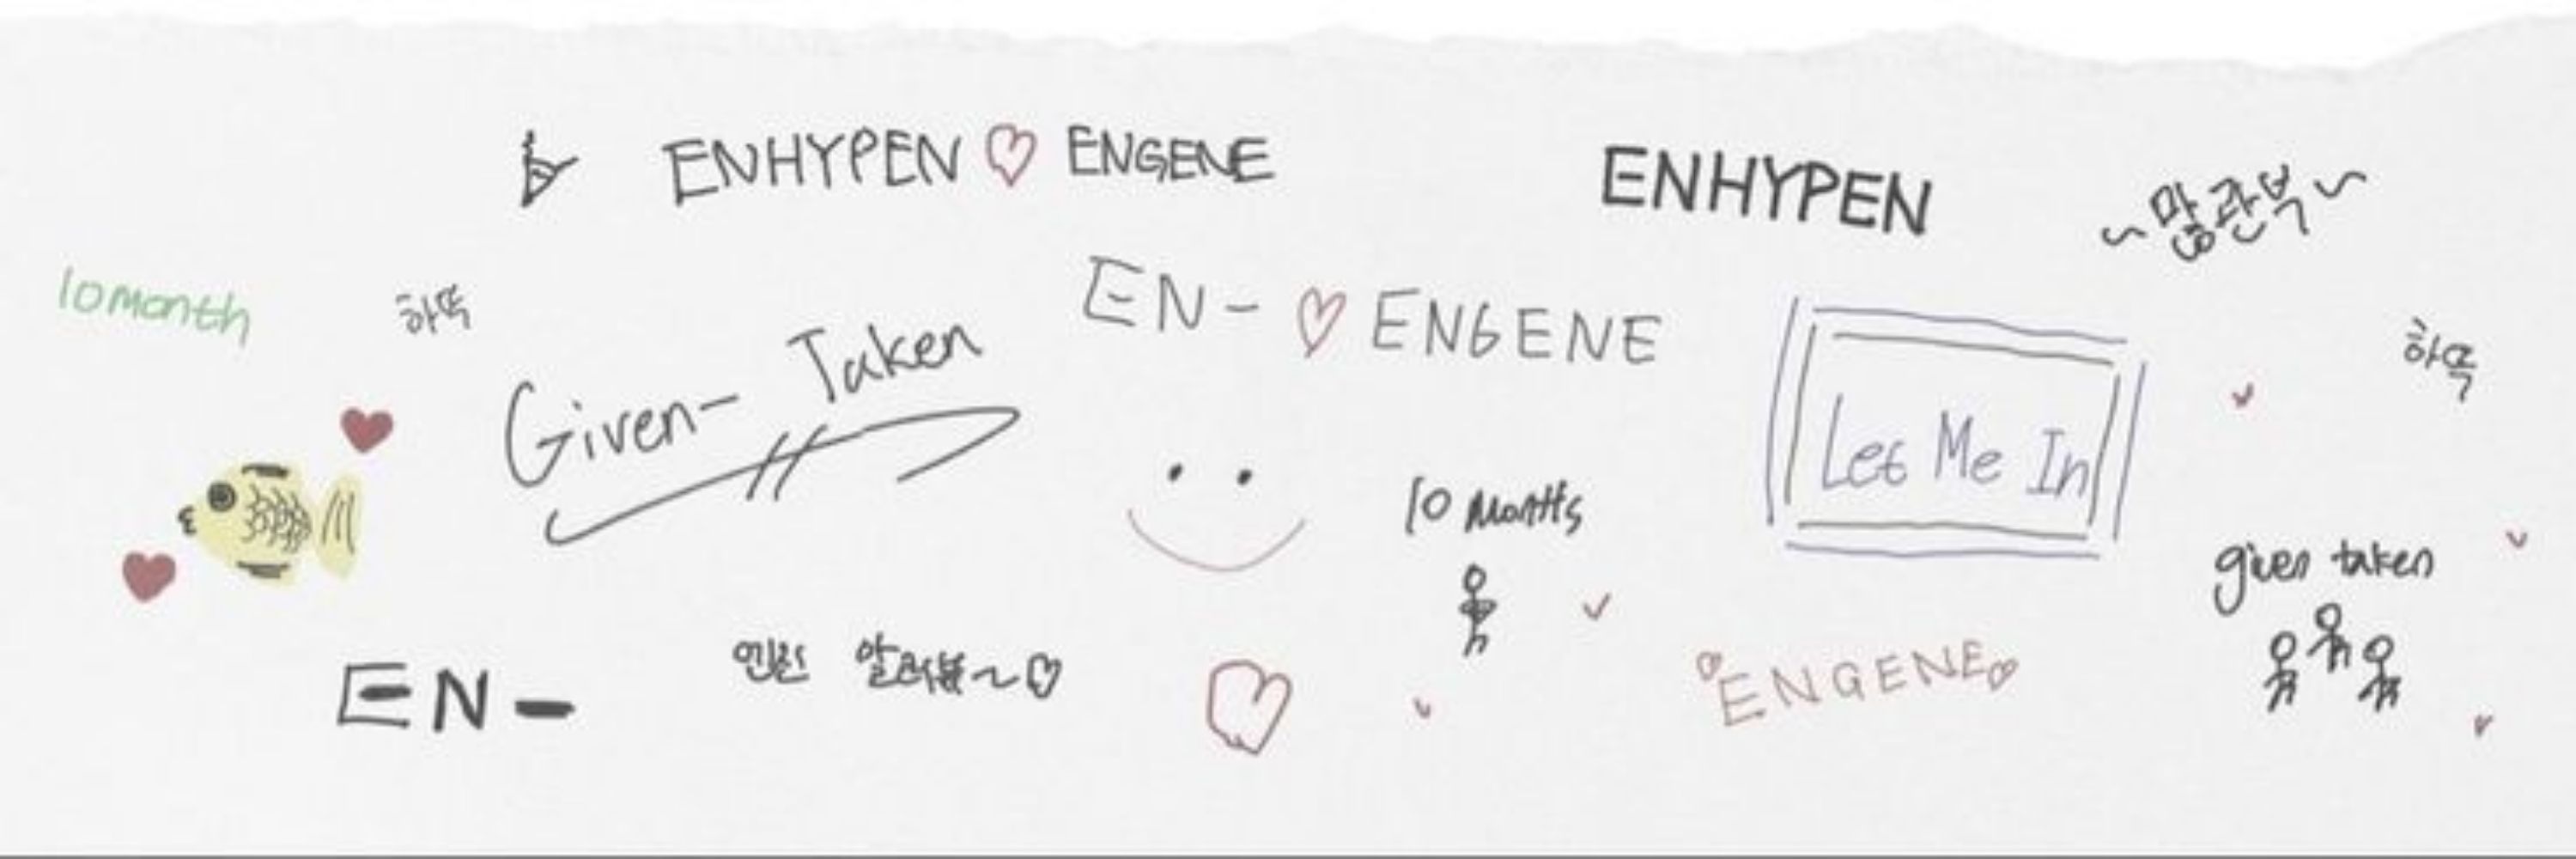 ENHYPEN ♡ ENGENE
ENHYPEN
~많관부~
10 month
하뚝
EN- ♡ ENGENE
Given- Taken
Let Me In
하뚝
10 Months
given taken
EN-
엔진 알러뷰~♡
♡ENGENE♡